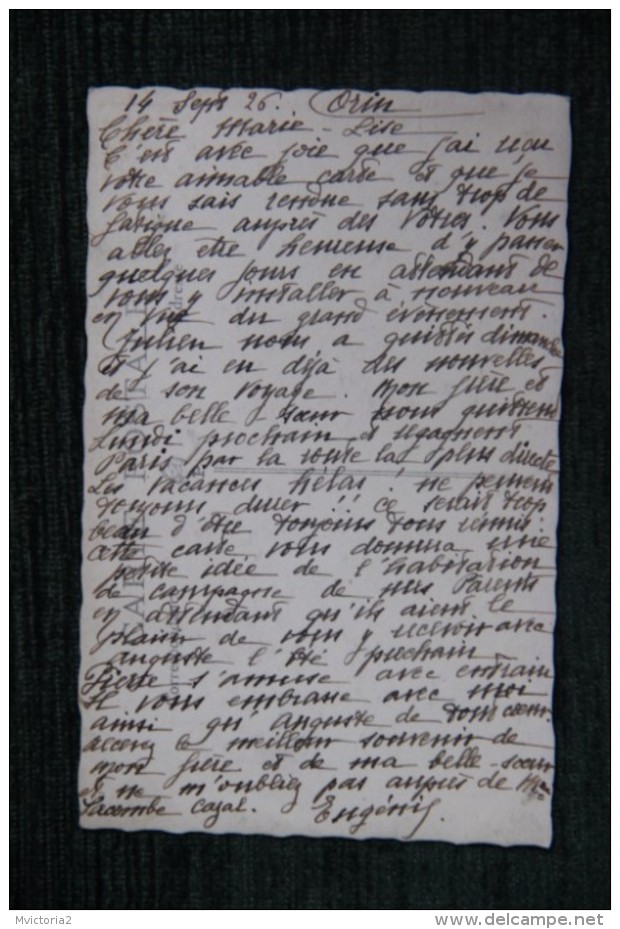 14 Sept 26. Orin
Chère Marie-Lise
C'est avec joie que j'ai reçu
votre aimable carte et que je
vous sais rendue sans trop de
fatigue auprès des vôtres. Vous
allez être heureuse d'y passer
quelques jours en attendant de
vous y installer à nouveau
en vue du grand évènement.
Julien nous a quittés dimanche
et j'ai eu déjà des nouvelles
de son voyage. Mon frère et
ma belle-sœur nous quittent
Lundi prochain et regagnent
Paris par la route la plus directe
Les vacances hélas! ne peuvent
toujours durer!! ce serait trop
beau d'être toujours tous réunis.
cette carte vous donnera une
petite idée de l'habitation
de campagne de mes Parents
en attendant qu'ils aient le
plaisir de vous y recevoir avec
auguste l'été prochain
Pierre s'amuse avec entrain
et vous embrasse avec moi
ainsi qu'auguste de tout cœur.
le meilleur souvenir de
mon frère et de ma belle-sœur
et ne m'oubliez pas auprès de Mme
Lacombe Cazal. Eugénie.
CARTE POSTALE
Adresse
Mvictoria2
www.delcampe.net